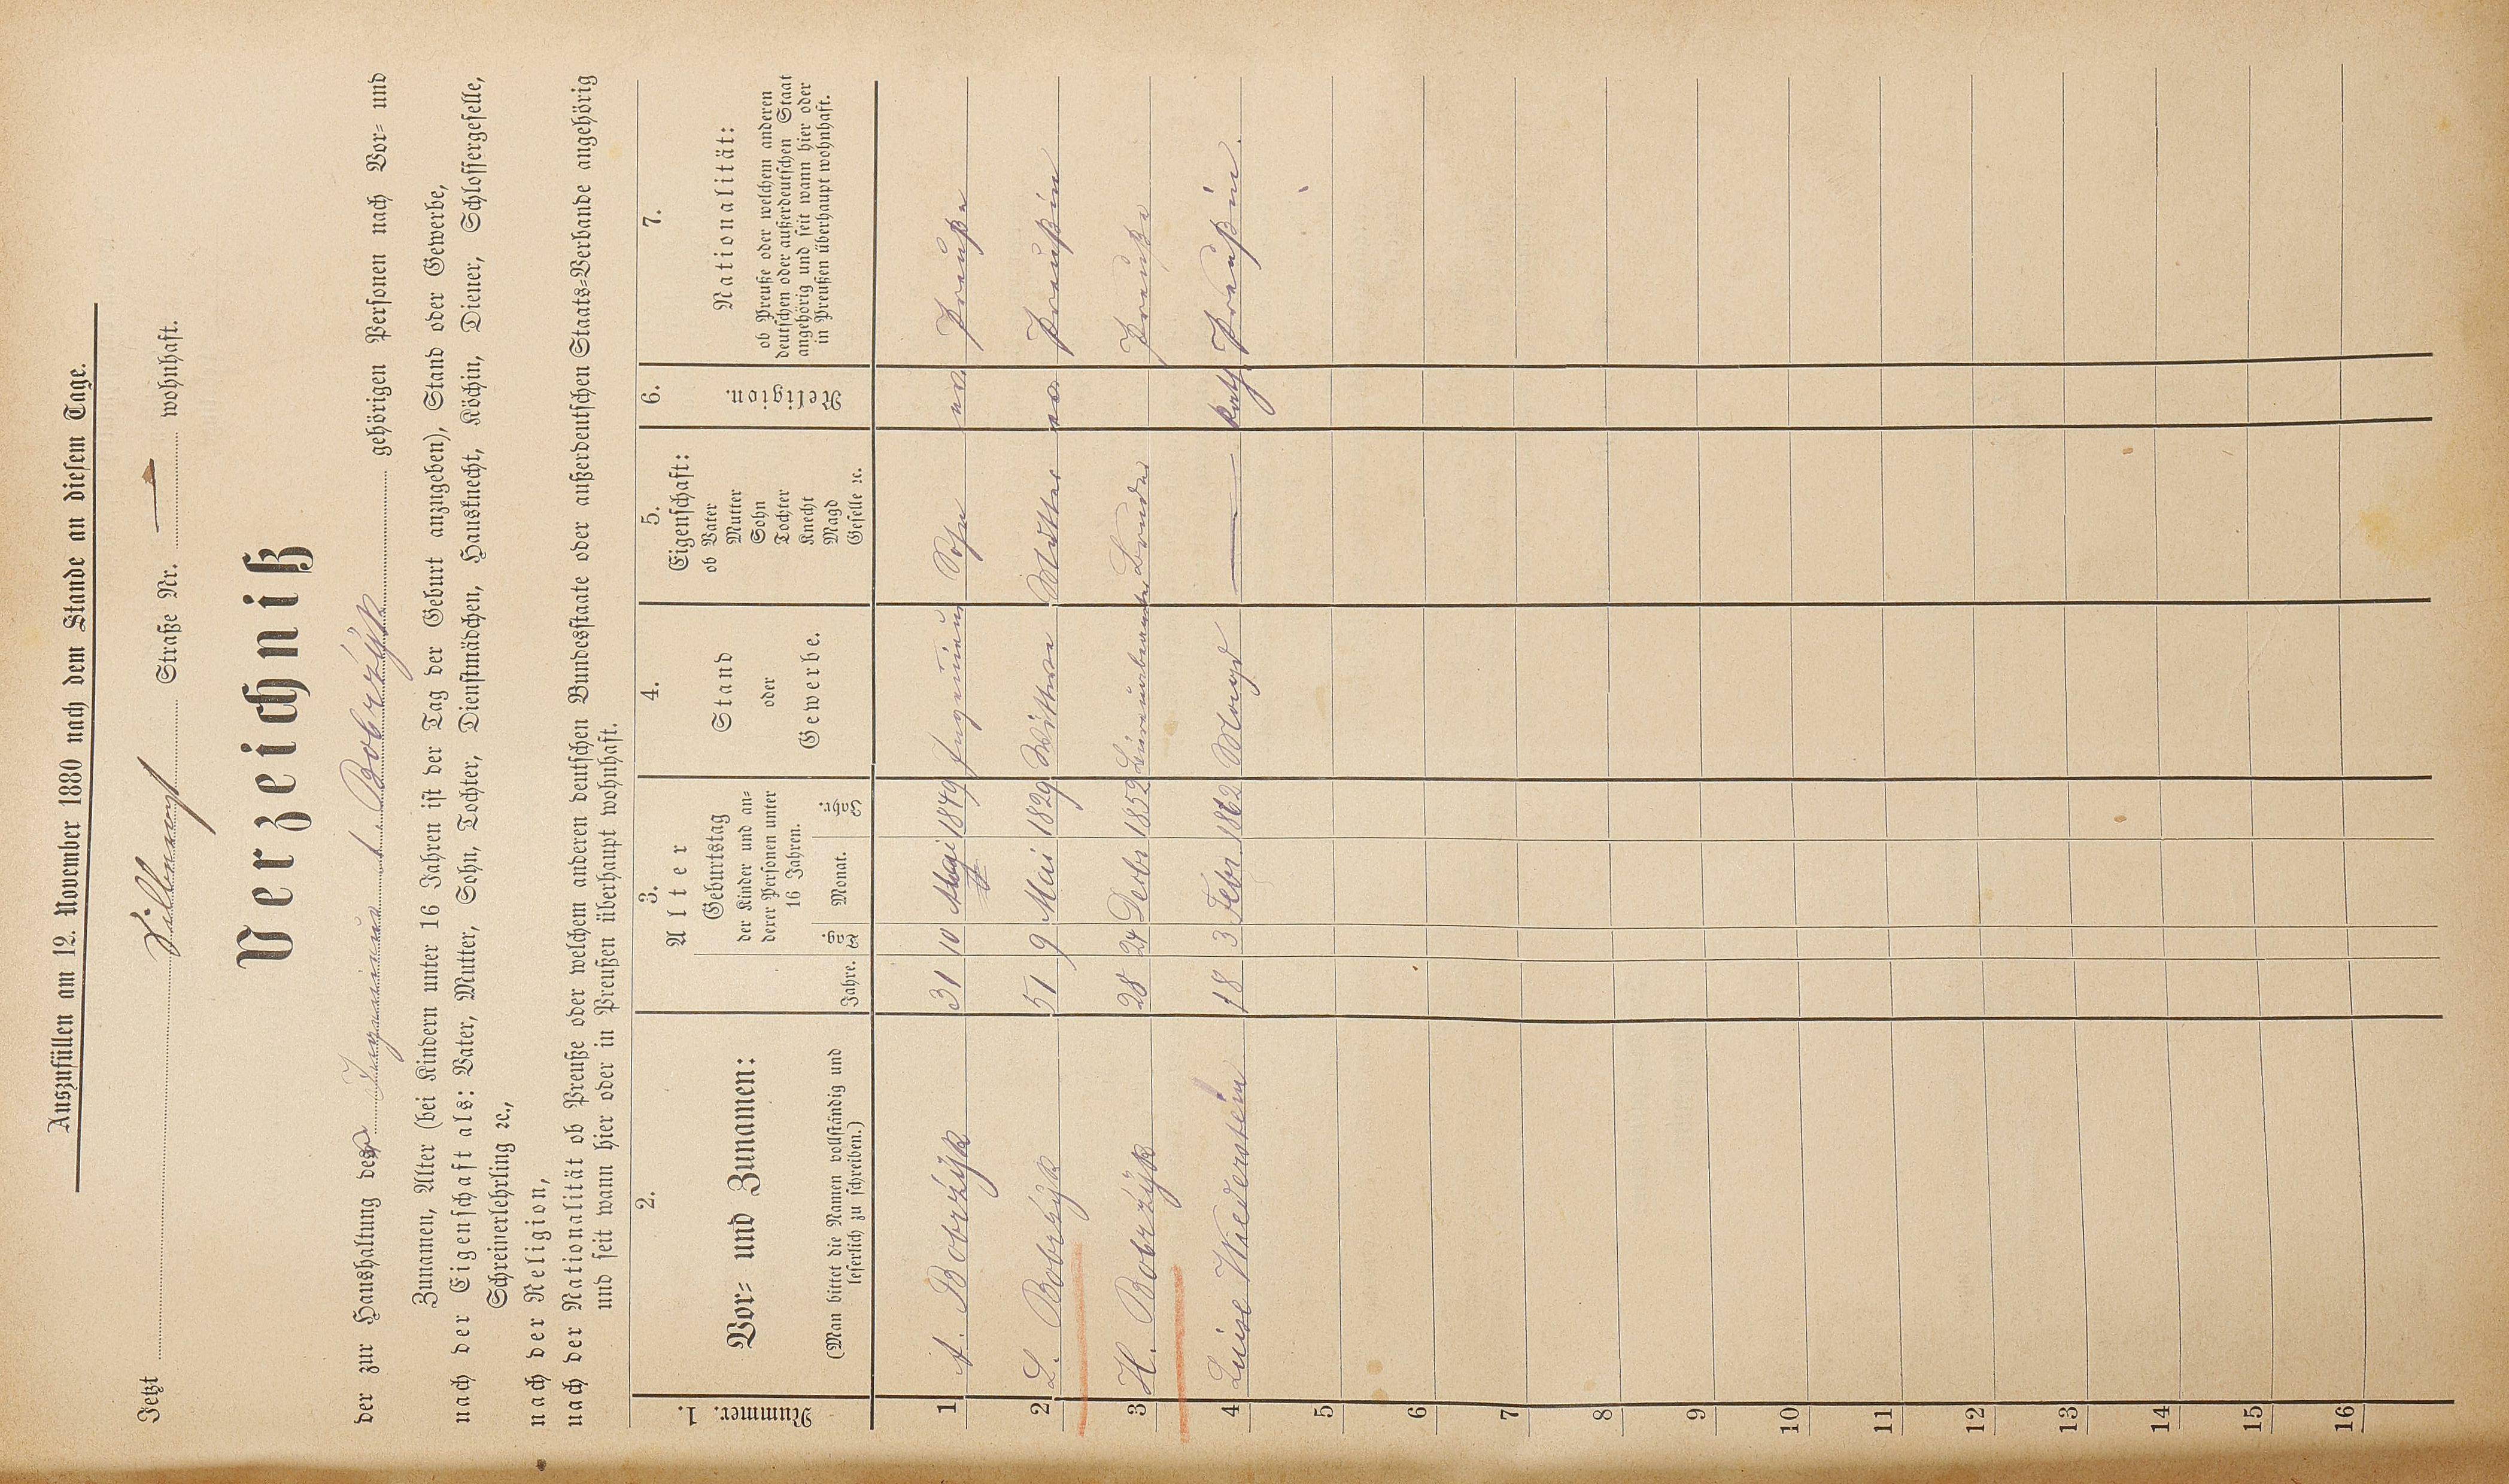 Auszufüllen am 12. November 1880 nach dem Stande an diesem Tage.
Jetzt Straße Nr. — wohnhaft.
Verzeichniß
der zur Haushaltung des Ingenieur A. Bobrzÿk gehörigen Personen nach Vor- und
Zunamen, Alter (bei Kindern unter 16 Jahren ist der Tag der Geburt anzugeben), Stand oder Gewerbe,
nach der Eigenschaft als: Vater, Mutter, Sohn, Tochter, Dienstmädchen, Hausknecht, Köchin, Diener, Schlossergeselle,
Schreinerlehrling ꝛc.,
nach der Religion,
nach der Nationalität ob Preuße oder welchem anderen deutschen Bundesstaate oder außerdeutschen Staats-Verbande angehörig
und seit wann hier oder in Preußen überhaupt wohnhaft.
Nummer. 1.
2.
Vor- und Zunamen:
(Man bittet die Namen vollständig und
leserlich zu schreiben.)
3.
Alter
Jahre.
Geburtstag
der Kinder und an-
derer Personen unter
16 Jahren.
Tag Monat. Jahr.
4.
Stand
oder
Gewerbe.
5.
Eigenschaft:
ob Vater
Mutter
Sohn
Tochter
Knecht
Magd
Geselle ꝛc.
6.
Religion.
7.
Nationalität:
ob Preuße oder welchem anderen
deutschen oder außerdeutschen Staat
angehörig und seit wann hier oder
in Preußen überhaupt wohnhaft.
1 A. Bobrzÿk 31 10 Mai 1849 Ingenieur Sohn ev. Preuße
2 L. Bobrzÿk 51 9 Mai 1829 Wittwe Mutter ev. Preußin
3 H. Bobrzÿk 28 24 Decbr 1852 Bruder Preuße
4 Luise Wiederstein 18 3 Febr. 1862 Magd — kath. Preußin.
5
6
7
8
9
10
11
12
13
14
15
16